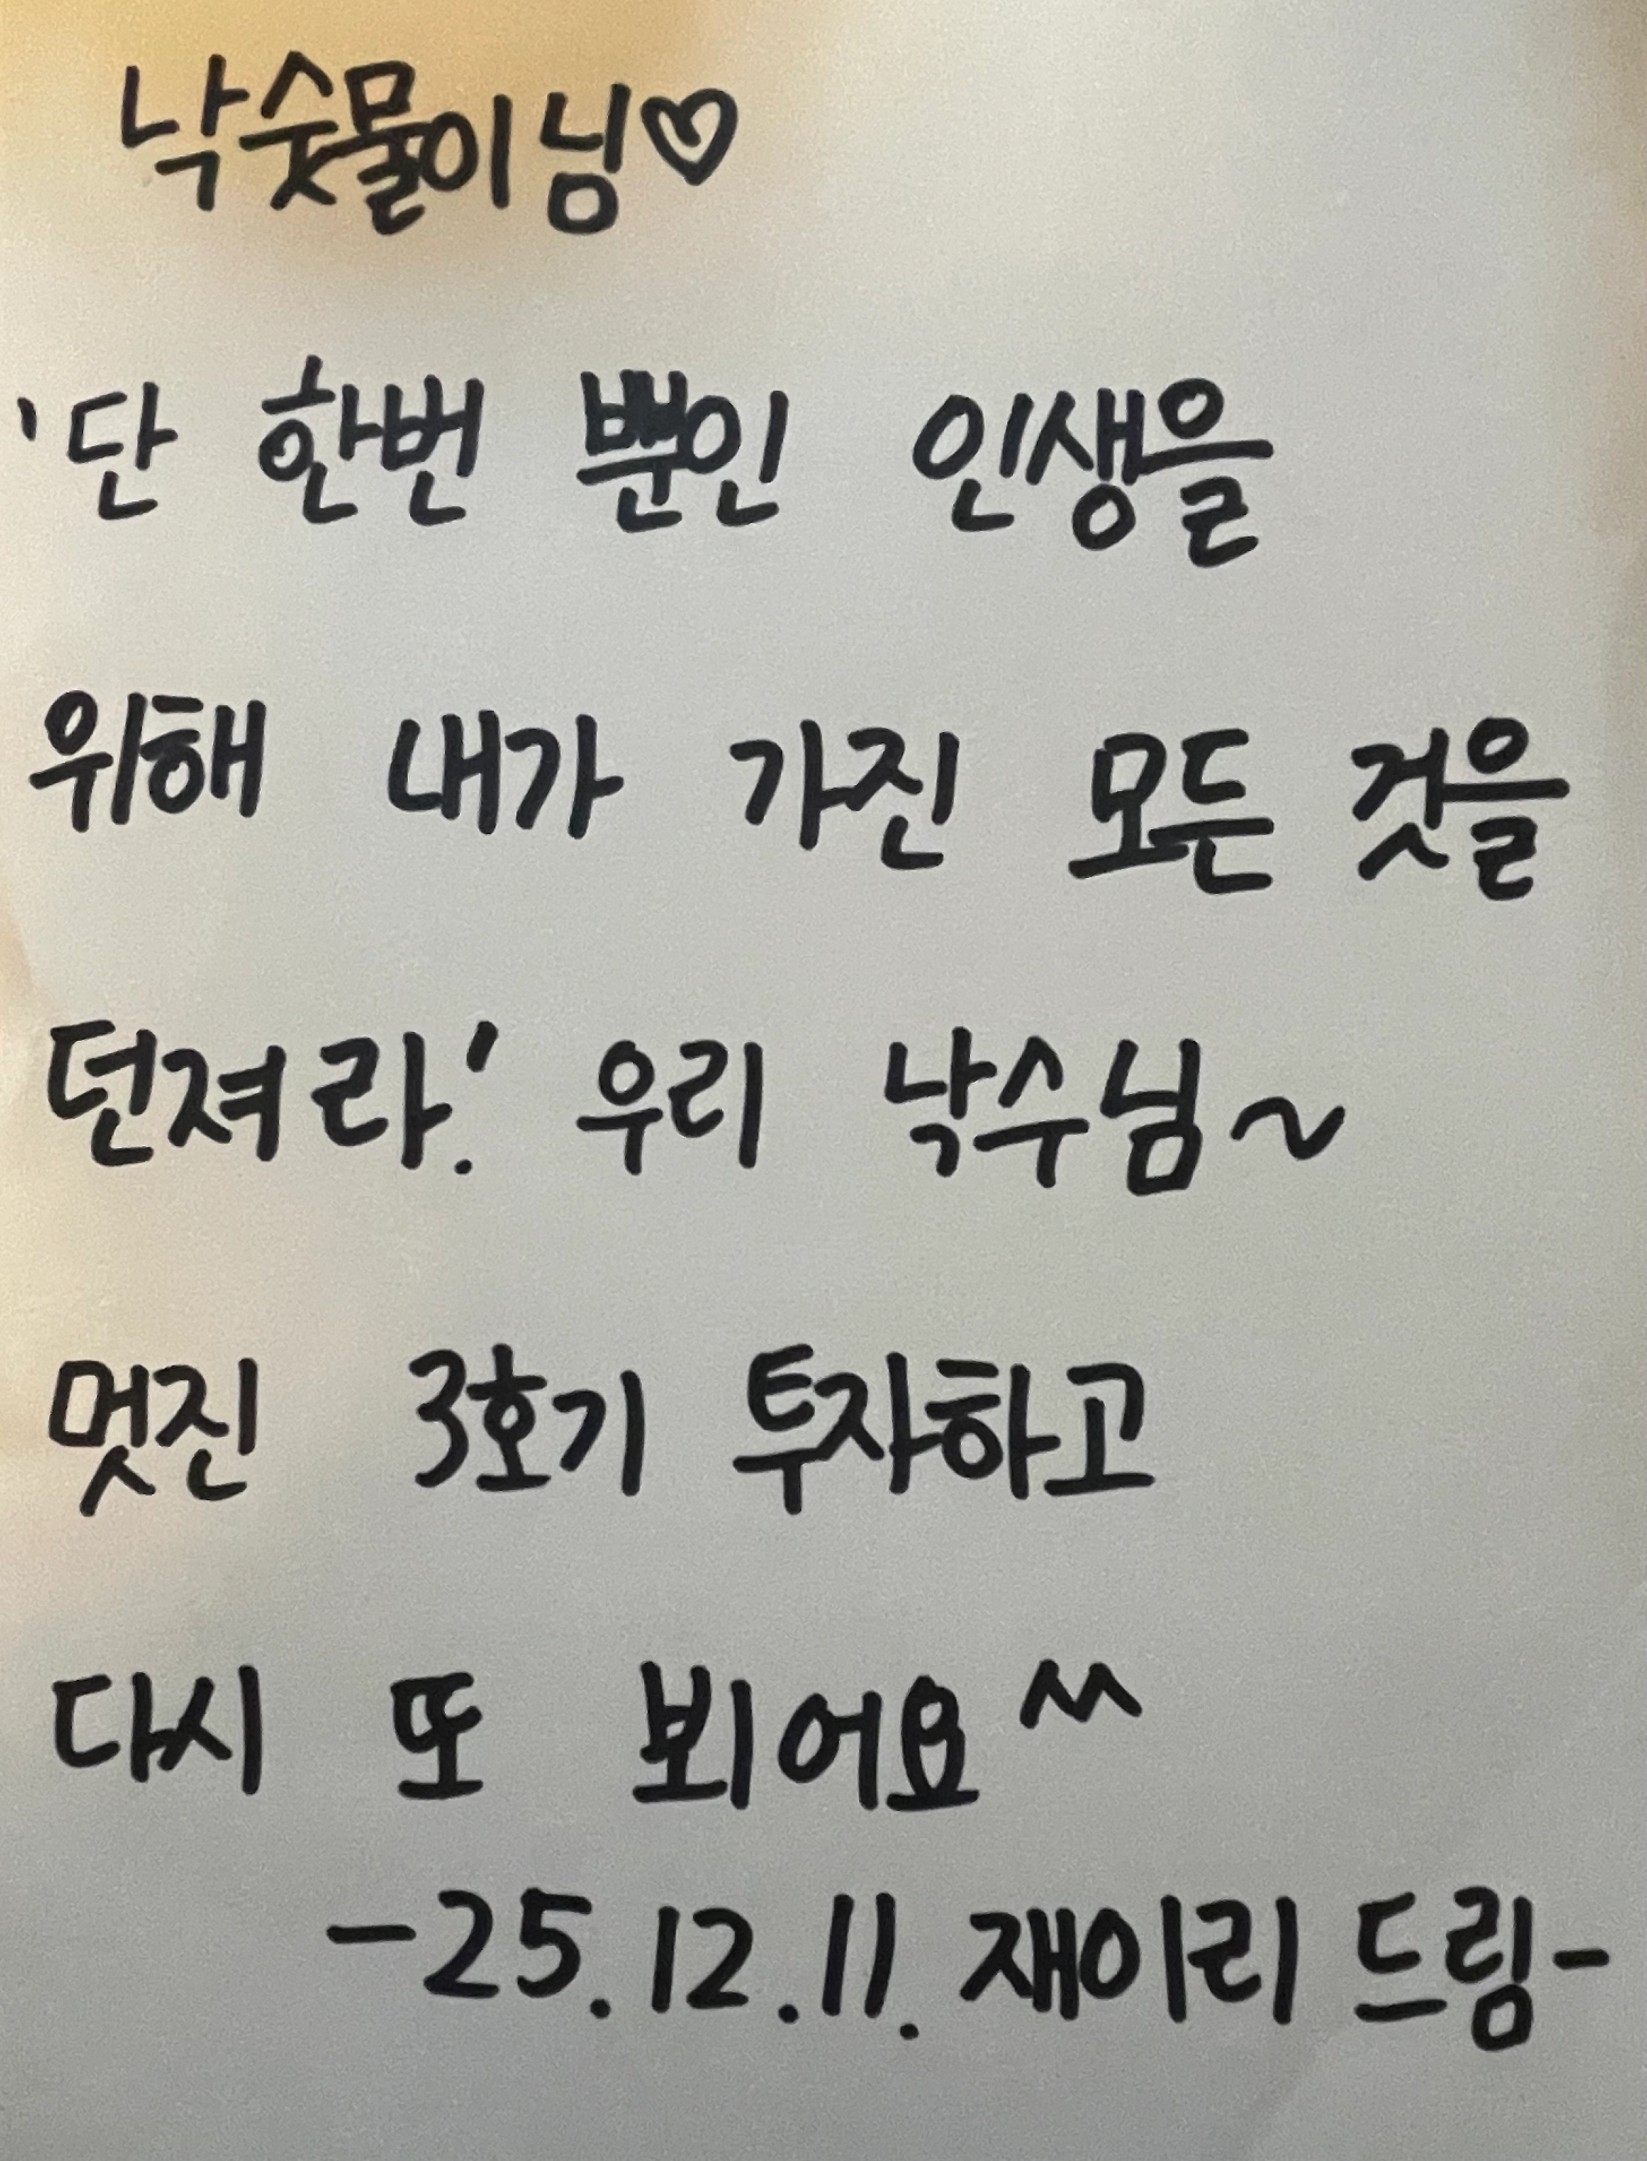 낙숫물이님♡
'단 한번 뿐인 인생을
위해 내가 가진 모든 것을
던져라.' 우리 낙수님~
멋진 3호기 투자하고
다시 또 뵈어요^^
-25.12.11. 재이리 드림-